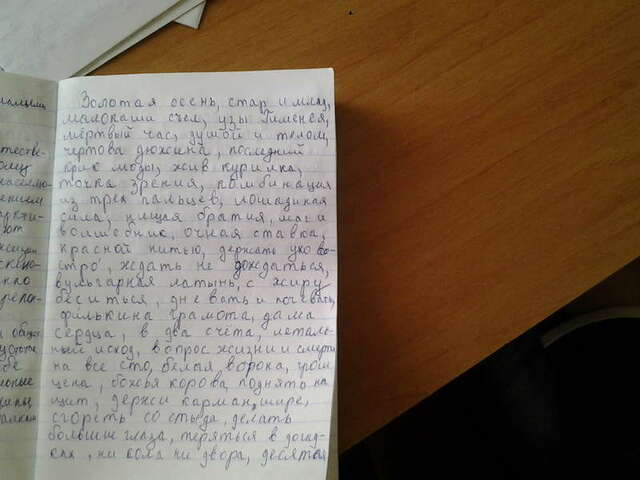 Золотая осень, стар и млад,
мало каши съел, узы Гименея,
мертвый час, душой и телом,
чертова дюжина, последний
крик моды, жив курилка,
точка зрения, комбинация
из трех пальцев, лошадиная
сила, нищая братия, маг и
волшебник, очная ставка,
красной нитью, держать ухо во-
стро, ждать не дождаться,
вульгарная латынь, с жиру
беситься, дневать и ночевать,
филькина грамота, дама
сердца, в два счёта, леталь-
ный исход, вопрос жизни и смерти
на все сто, белая ворона, грош
цена, божья корова, поднять на
щит, держи карман шире,
сгореть со стыда, делать
большие глаза, теряться в догад-
ках, ни кола ни двора, десятая